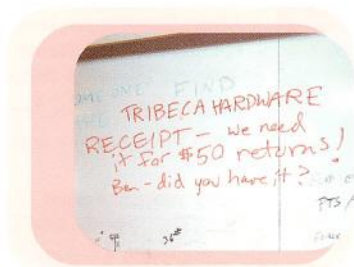 OME ONE FIND
TRIBECA HARDWARE
RECEIPT - we need
it for $50 returns!
Ben - did you have it?
PTS
36"